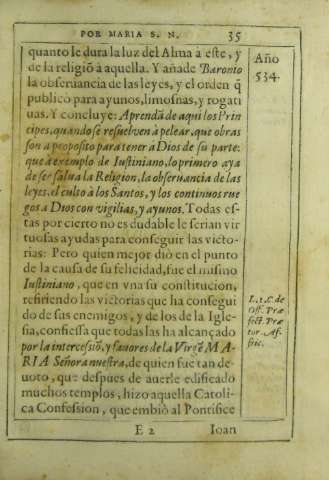 POR MARIA S. N. 35
quanto le dura la luz del Alua a este, y
de la religiõ a aquella. Y añade Baronio
la obseruancia de las leyes, y el orden q̃
publicò para ayunos, limosnas, y rogati
uas. Y concluye: Aprendã de aqui los Prin
cipes, quando se resueluen à pelear, que obras
son a proposito para tener à Dios de su parte:
que à exemplo de Iustiniano, lo primero aya
de ser salua la Religion, la obseruancia de las
leyes, el culto à los Santos, y los continuos rue
gos à Dios con vigilias, y ayunos. Todas es-
tas por cierto no es dudable le serian vir
tuosas ayudas para conseguir las victo-
rias: Pero quien mejor diò en el punto
de la causa de su felicidad, fue el mismo
Iustiniano, que en vna su constitucion,
refiriendo las victorias que ha consegui
do de sus enemigos, y de los de la Igle-
sia, confiessa que todas las ha alcançado
por la intercessiõ, y fauores de la Virgẽ MA-
RIA Señora nuestra, de quien fue tan de-
uoto, que despues de auerle edificado
muchos templos, hizo aquella Catoli-
ca Confession, que embiò al Pontifice
E 2 Ioan
Año
534.
L. 1. C. de
Off. Præ
fect. Præ
tor. Af-
fric.